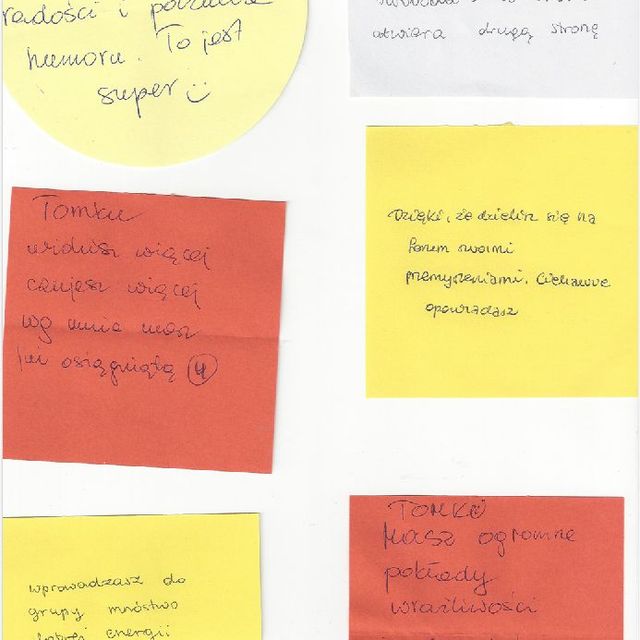 radości i poczucia
humoru. To jest
super
otwiera drugą stronę
Tomku
widzisz więcej
czujesz więcej
wg mnie masz
już osiągniętą 4
Dzięki, że dzielisz się na
forum swoimi
przemyśleniami. Ciekawie
opowiadasz
wprowadzasz do
grupy mnóstwo
dobrej energii
TOMKU
Masz ogromne
pokłady
wrażliwości